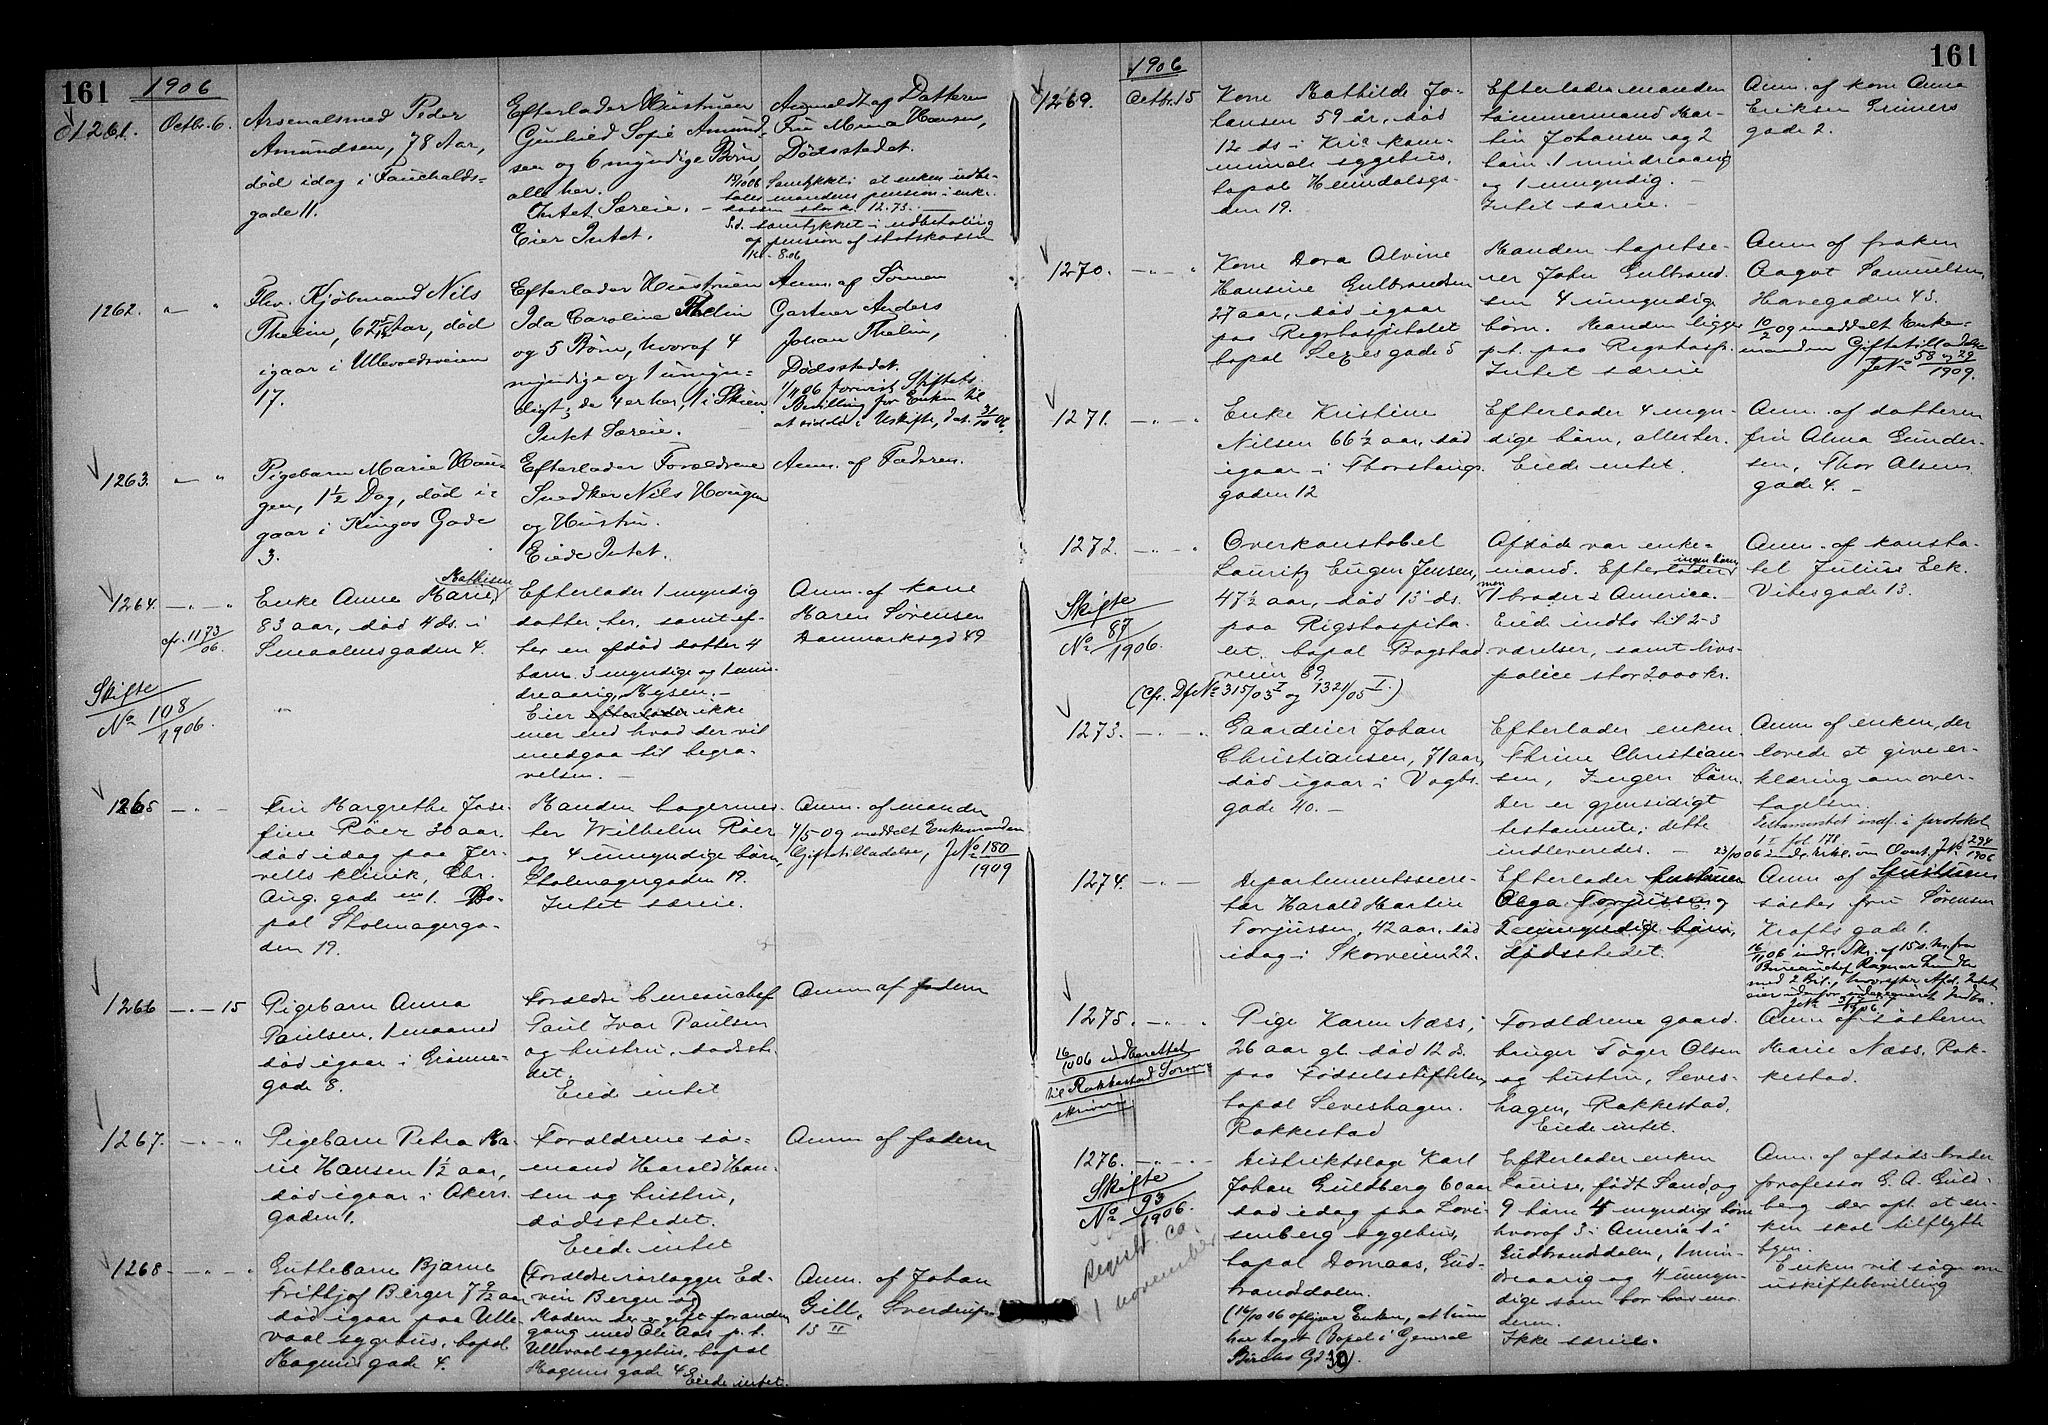 161
1906
01261.
Octbr. 6.
Arsenalsmed Peder
Amundsen, 78 Aar,
død idag i Fauchalds-
gade 11.
Efterlader Hustruen
Gunhild Sofie Amund-
sen og 6 myndige Børn,
alle her.
Intet Særeie. -
Eier Intet.
Anmeldt af Datteren
Fru Mina Hansen,
Dødsstedet.
Samtykket i at enken indbe-
taler mandens pension i enke-
kassen stor kr. 12.73.
S.d. samtykket i udbetaling
af pension af statskassen
kr. 8.06
1262.
Fhv. Kjøbmand Nils
Thelin, 62 Aar, død
igaar i Ullevoldsveien
17.
Efterlader Hustruen
Ida Caroline Thelin
og 5 Børn, hvoraf 4
myndige og 1 umyn-
digt; de 4 er her, 1 i Skien.
Intet Særeie.
Anm. af Sønnen
Gartner Anders
Johan Thelin,
Dødsstedet.
1/11 06 forevist Skiftets
Bevilling for Enken til
at sidde i Uskifte, dat. 31/10 06.
1263.
Pigebarn Marie Hau-
gen, 1 1/2 Dag, død i-
gaar i Kingos Gade
3.
Efterlader Forældrene
Snedker Nils Hougen
og Hustru.
Eiede Intet.
Anm. af Faderen.
1264.
cfr. 1173/06
Skifte
No 108/1906.
Enke Anne Marie Mathisen
83 aar, død 4 ds. i
Smaalensgaden 4.
Efterlader 1 myndig
datter, her, samt ef-
ter en afdød datter 4
børn 3 myndige og 1 min-
dreaarig, Mysen. -
Eier efterlader ikke
mer end hvad der vil
medgaa til begra-
velsen. -
Anm. af kone
Maren Sørensen
Danmarksgd 49
1265
Fru Margrethe Jose-
fine Røer 30 aar.
død idag paa Jer-
vells klinik, Chr.
Aug. gade no 1. Bo-
pal Stolmagerga-
den 19.
Manden bagermes-
ter Wilhelm Røer
og 4 umyndige børn,
Stolmagergaden 19.
Intet særeie.
Anm. af manden
4/5 09 meddelt Enkemanden
Giftetilladelse, JNo 180/1909
1266
15
Pigebarn Anna
Paulsen, 1 maaned
død igaar i Grønne-
gade 8.
Forældre bureauchef
Paul Ivar Paulsen
og hustru, dødsste-
det.
Eiede intet
Anm af fadern
1267.
Pigebarn Petra Ma-
rie Hansen 1 1/2 aar,
død igaar i Akers-
gaden 1.
Forældrene sø-
mand Harald Han-
sen og hustru,
dødsstedet.
Eiede intet
Anm af fadern
1268
Guttebarn Bjarne
Fritjof Berger 7 1/2 aar
død igaar paa Ulle-
vaal sygehus, bopal
Magnusgade 4.
(Forældre rørlægger Ed-
vin Berger og)
Modern der er gift foranden
gang med Ole Aas p.t.
Ullevaal sygehus, bopal
Magnus gade 4 Eiede intet.
Anm. af Johan
Gill, Sverdrups
15 II
161
1906
1269.
Octbr. 15
Kone Mathilde Jo-
hansen 59 år, død
12 ds i Kria kom-
munale sygehus,
bopal Heimdalsga-
den 19.
Efterlader manden
tømmermand Mar-
tin Johansen og 2
børn 1 mindreaarig
og 1 umyndig. -
Intet særeie. -
Anm. af kone Anna
Eriksen Griners
gade 2.
1270.
Kone Dora Alvine
Hansine Gulbrandsen
27 aar, død igaar
paa Rigshospitalet
bopal Sexesgade 5
Manden tapetse-
rer John Gulbrand-
sen 4 umyndig
børn. Manden ligger
p.t. paa Rigshosp.
Intet særeie
Anm af frøken
Aagot Samuelsen,
Havegaden 43.
10/2 09 meddelt Enke-
manden Giftetilladelse
JNo 58 og 29/1909.
1271.
Enke Kristine
Nilsen 66 1/2 aar, død
igaar i Thorshaugs-
gaden 12
Efterlader 4 myn-
dige børn, aller her.
Eiede intet.
Anm. af datteren
fru Alma Gunder-
sen, Thor Olsens
gade 4. -
1272.
Skifte
No 87/1906.
Overkonstabel
Lauritz Eugen Jensen,
47 1/2 aar, død 13 ds.
paa Rigshospita-
let, bopal Bogstad-
veien 89.
(Cfr. Df No 315/03 I og 1321/05 I.)
Afdøde var enke-
mand. Efterlader ingen børn
men 1 broder i America. -
Eiede indbo til 2-3
værelser, samt livs-
police stor 2000 kr.
Anm. af konsta-
bel Julius Eek.
Vibesgade 13.
1273.
Gaardeier Johan
Christiansen, 71 aar,
død igaar i Vogts-
gade 40. -
Efterlader enken
Thrine Christian-
sen, Ingen børn,
Der er gjensidigt
testamente; dette
indleveredes. -
Anm af enken, der
lovede at give er-
klæring om over-
tagelsen.
Testamentet indf. i protokol
I fol. 178
23/10 06 indk. Erkl. om Overt. JNo 294/1906
1274.
Departementssecre-
tær Harald Martin
Torjussen, 42 aar, død
idag i Skovveien 22.
Efterlader hustruen
Olga Torjussen og
2 umyndige børn,
dødsstedet.
Anm af
søster fru Sørensen
Krafts gade 1.
16/11 06 indk. Skr. af 15 d.m. fra
Bureauchef Ragnar
1275.
16/10 06 indberettet
til Rakkestad Soren-
skriver
Pige Karen Næss,
26 aar gl. død 12 ds.
paa Fødselsstiftelsen,
bopal Seveshagen.
Rakkestad
Forældrene gaard-
bruger Tøger Olsen
og hustru, Seves-
hagen, Rakkestad,
Eiede intet.
Anm af søsteren
Marie Næss, Rak-
kestad.
1276.
Skifte
No 93/1906.
Registr. ca.
1 november
Distriktslæge Karl
Johan Guldberg 60 aar
død idag paa Lovi-
senberg sygehus,
bopal Domaas, Gud-
brandsdalen.
(16/10 06 oplyser Enken, at hun
har taget Bopel i General
Birchs Gd 30).
Efterlader enken
Louise, født Sand, og
9 børn 4 myndig
hvoraf 3 i America 1 i
Gudbrandsdalen, 1 min-
dreaarig og 4 umyn-
dige som bor hos mo-
deren.
Ikke særeie.
Anm. af afdødes broder
professor G. A. Guld-
berg der opl. at en-
ken skal tilflytte
byen.
Enken vil søge om
uskiftebevilling